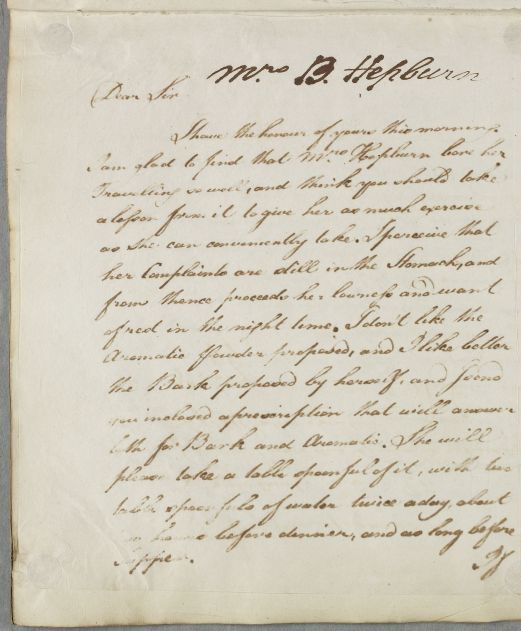 Mrs. B. Hepburn
Dear Sir
I have the honour of yours this morning.
I am glad to find that Mrs. Hepburn bore her
Travelling so well, and think you should take
a lesson from it to give her as much exercise
as she can conveniently take. I perceive that
her Complaints are still in the Stomach, and
from thence proceeds her lowness and want
of rest in the night time. I don't like the
Aromatic Powder proposed, and I like better
the Bark proposed by herself, and I send
you inclosed a prescription that will answer
both for Bark and Aromatic. She will
please take a table spoonful of it, with two
table spoonfuls of water twice a day, about
hour before dinner, and as long before
supper.
If